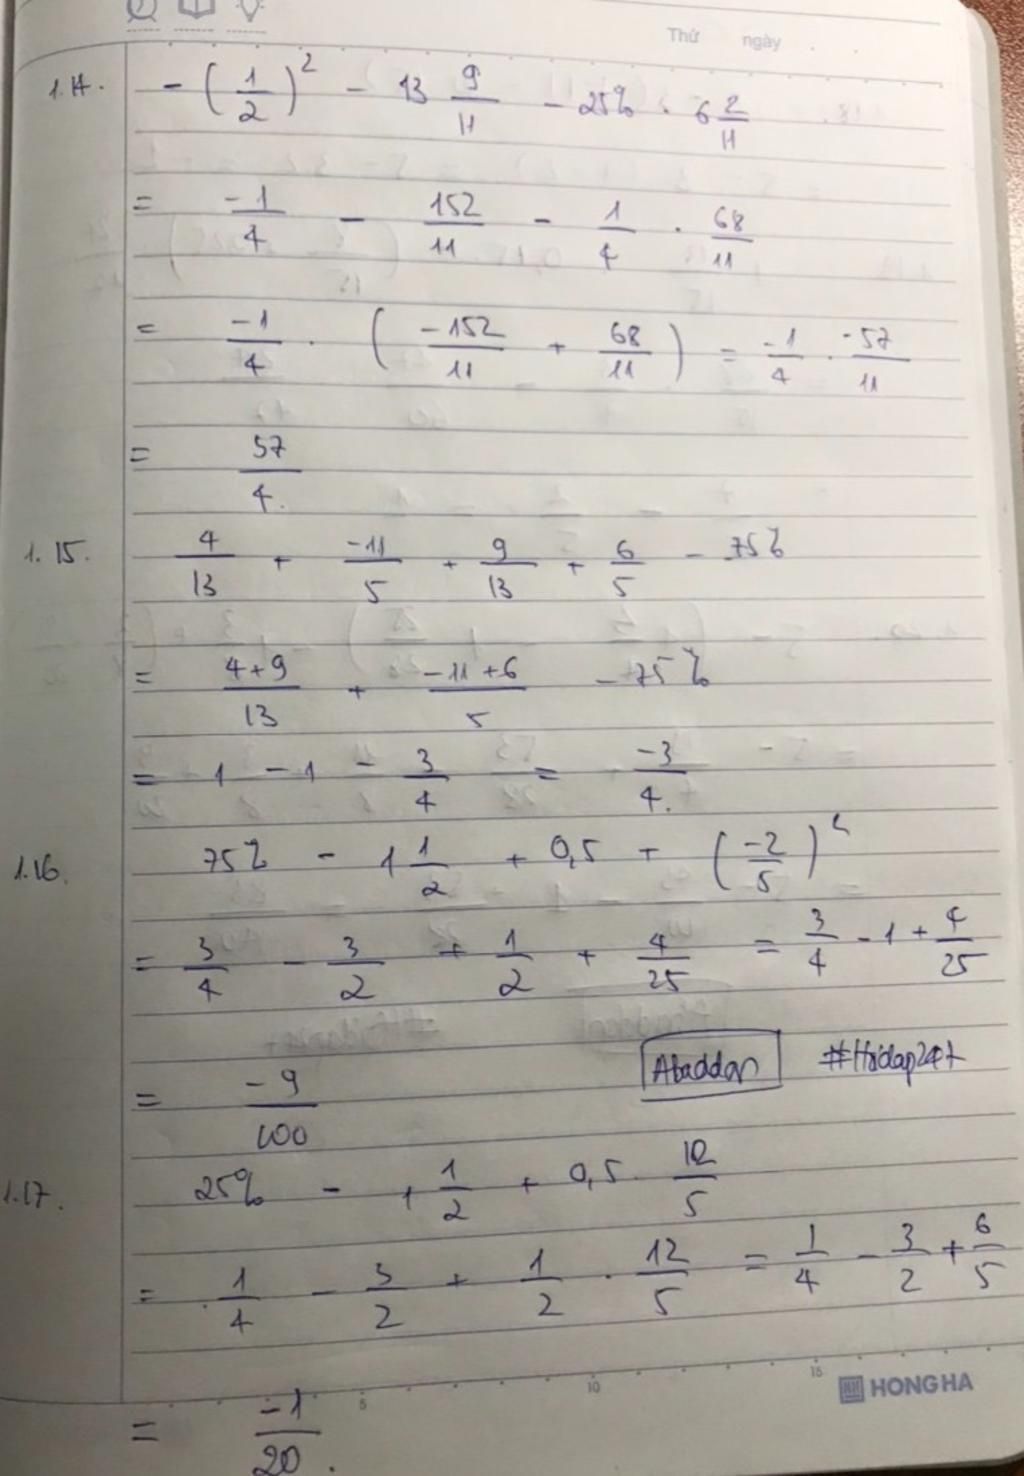 Thứ ngày
1.14. - (1/2)² - 13 9/11 - 25% . 6 2/11
= -1/4 - 152/11 - 1/4 . 68/11
= -1/4 . (-152/11 + 68/11) = -1/4 . -57/11
= 57/4.
1.15. 4/13 + -11/5 + 9/13 + 6/5 - 75%
= 4+9/13 + -11+6/5 - 75%
= 1 - 1 - 3/4 = -3/4.
1.16. 75% - 1 1/2 + 0,5 + (-2/5)²
= 3/4 - 3/2 + 1/2 + 4/25 = 3/4 - 1 + 4/25
Abaddon #Hoidap247
= -9/100
1.17. 25% - 1 1/2 + 0,5 . 12/5
= 1/4 - 3/2 + 1/2 . 12/5 = 1/4 - 3/2 + 6/5
5 10 15
HONG HA
= -1/20.